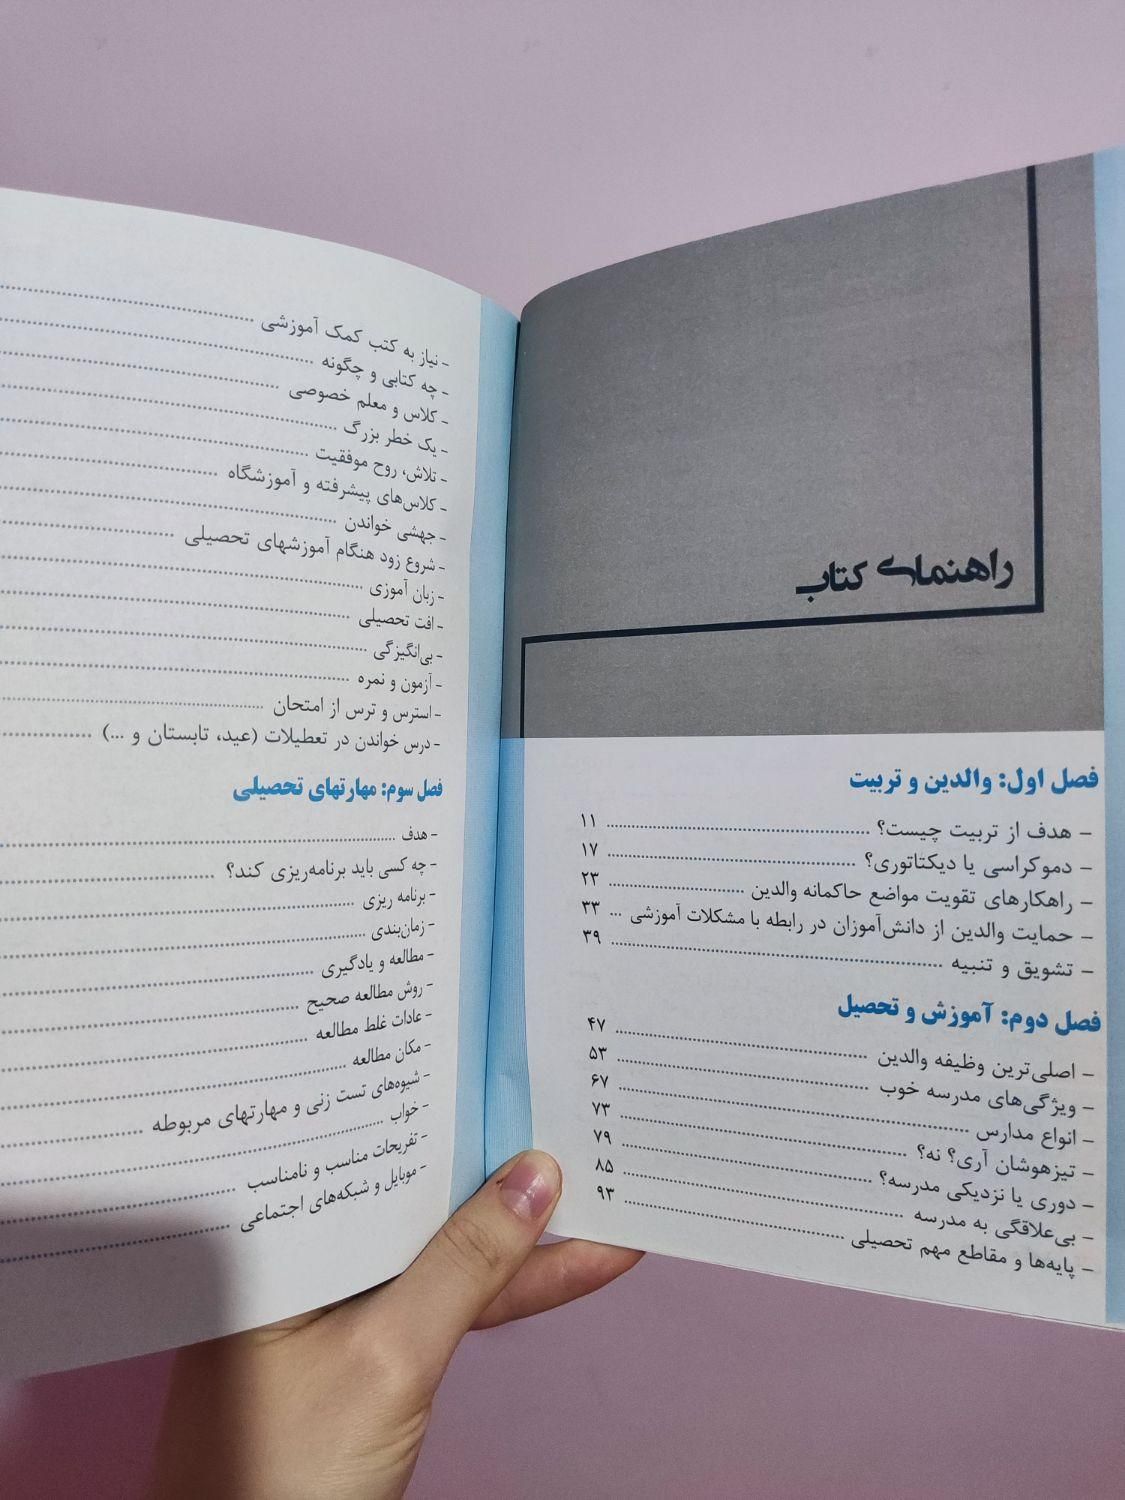 راهنمای کتاب
فصل اول: والدین و تربیت
- هدف از تربیت چیست؟ ........ ۱۱
- دموکراسی یا دیکتاتوری؟ ........ ۱۷
- راهکارهای تقویت مواضع حاکمانه والدین ........ ۲۳
- حمایت والدین از دانش‌آموزان در رابطه با مشکلات آموزشی ... ۳۳
- تشویق و تنبیه ........ ۳۹
فصل دوم: آموزش و تحصیل
- اصلی‌ترین وظیفه والدین ........ ۴۷
- ویژگی‌های مدرسه خوب ........ ۵۳
- انواع مدارس ........ ۶۷
- تیزهوشان آری؟ نه؟ ........ ۷۳
- دوری یا نزدیکی مدرسه؟ ........ ۷۹
- بی‌علاقگی به مدرسه ........ ۸۵
- پایه‌ها و مقاطع مهم تحصیلی ........ ۹۳
- نیاز به کتب کمک آموزشی ........
- چه کتابی و چگونه ........
- کلاس و معلم خصوصی ........
- یک خطر بزرگ ........
- تلاش، روح موفقیت ........
- کلاس‌های پیشرفته و آموزشگاه ........
- جهشی خواندن ........
- شروع زود هنگام آموزشهای تحصیلی ........
- زبان آموزی ........
- افت تحصیلی ........
- بی‌انگیزگی ........
- آزمون و نمره ........
- استرس و ترس از امتحان ........
- درس خواندن در تعطیلات (عید، تابستان و ...) ........
فصل سوم: مهارتهای تحصیلی
- هدف ........
- چه کسی باید برنامه‌ریزی کند؟ ........
- برنامه ریزی ........
- زمان‌بندی ........
- مطالعه و یادگیری ........
- روش مطالعه صحیح ........
- عادات غلط مطالعه ........
- مکان مطالعه ........
- شیوه‌های تست زنی و مهارتهای مربوطه ........
- خواب ........
- تفریحات مناسب و نامناسب ........
- موبایل و شبکه‌های اجتماعی ........